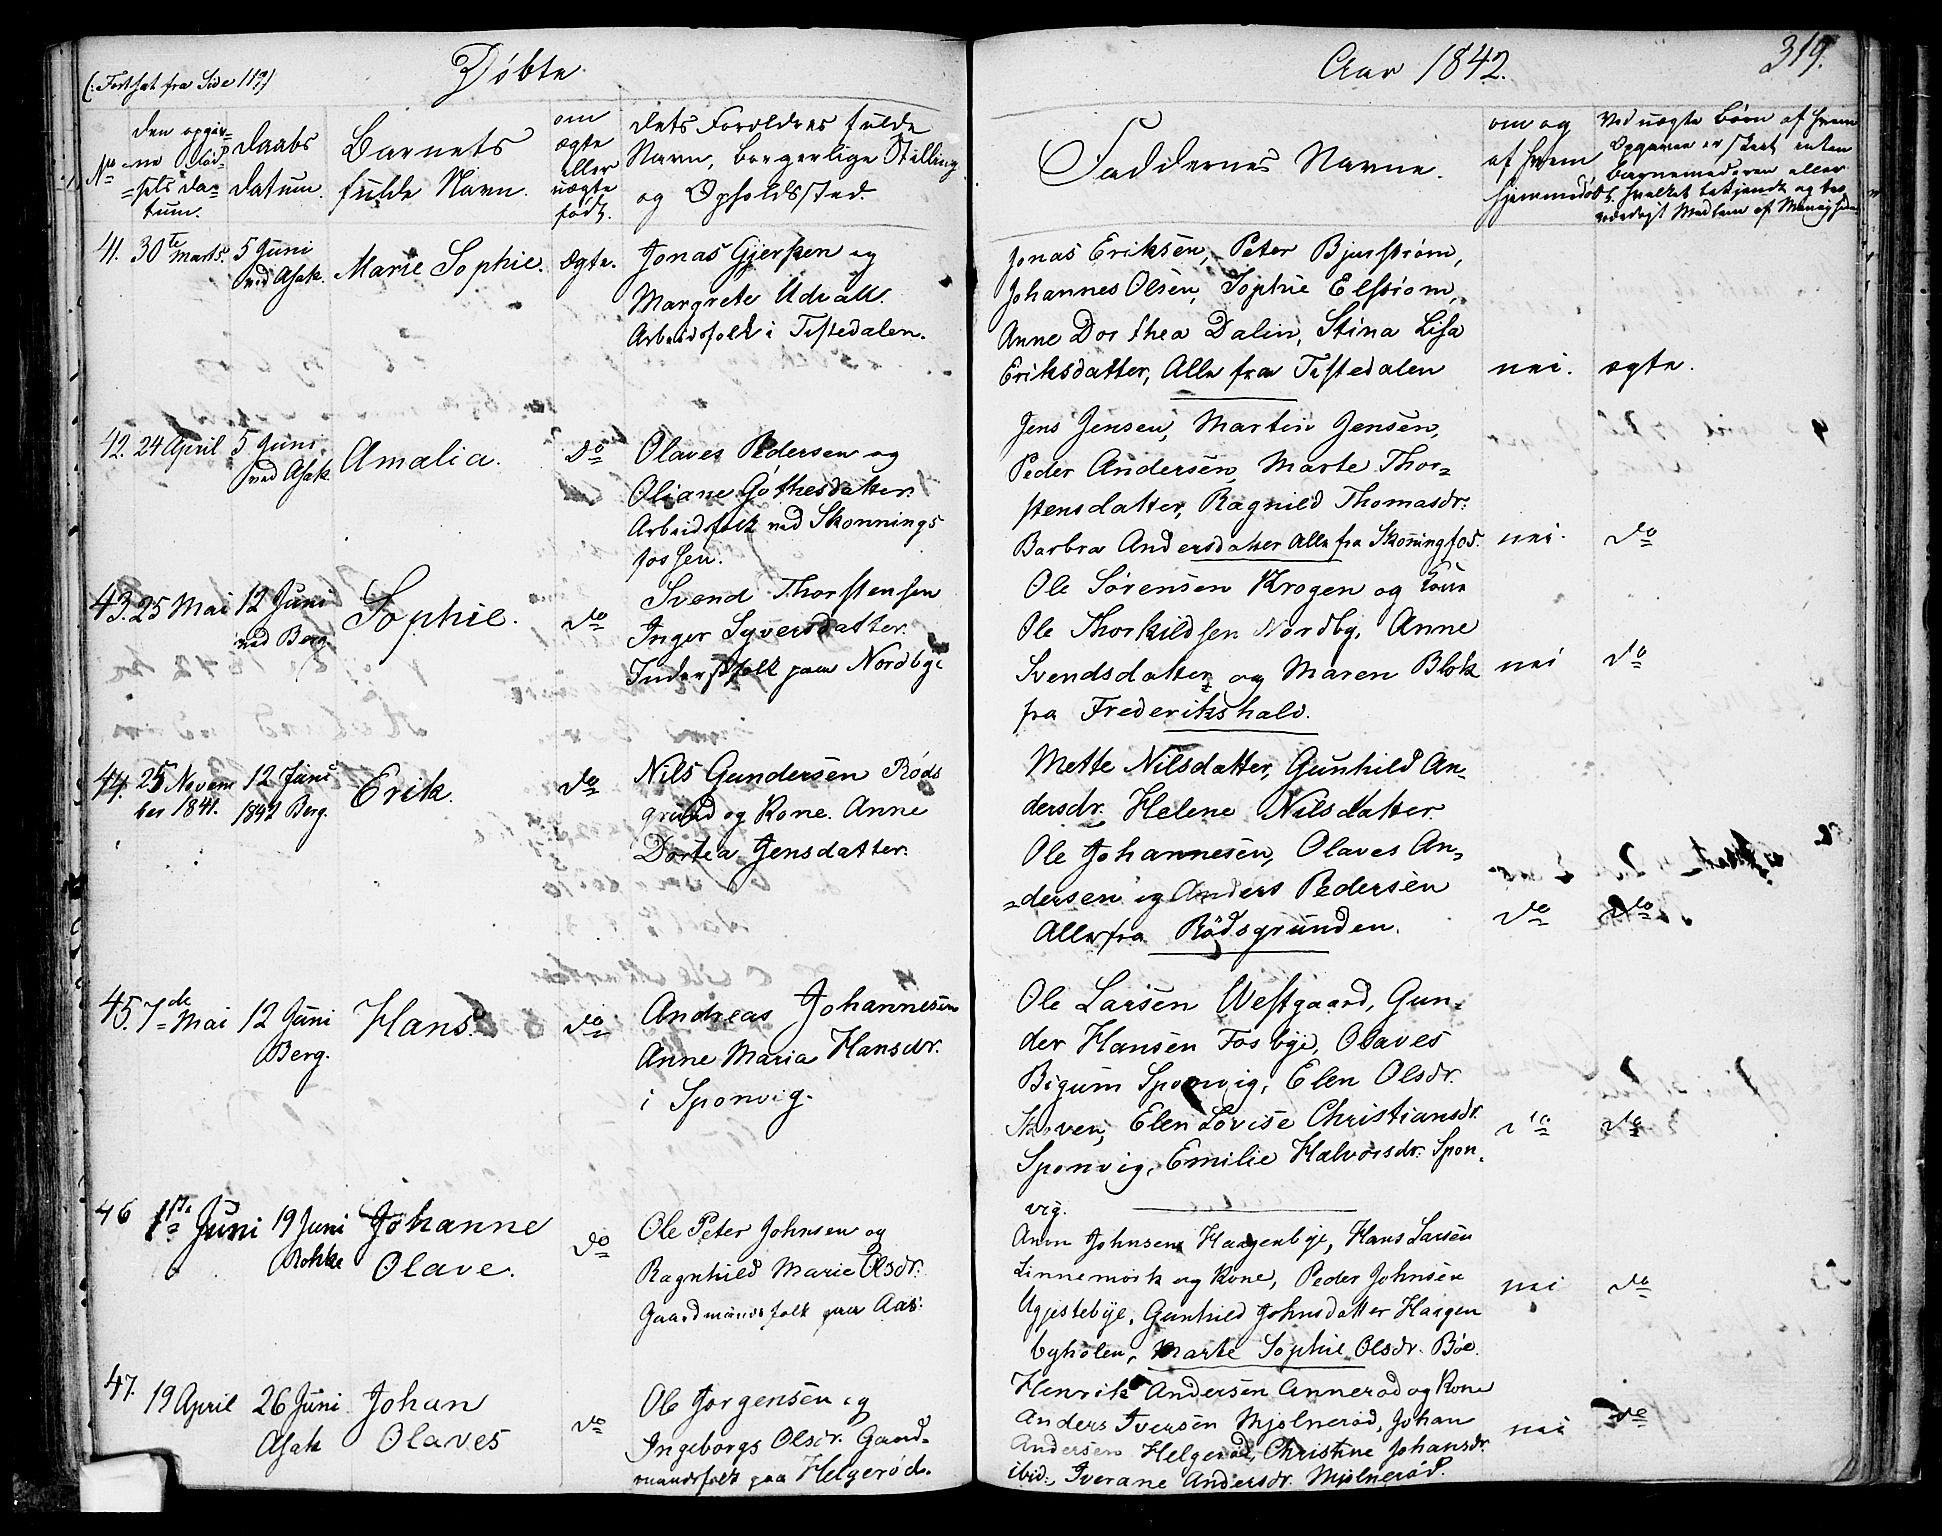 (: Fortsat fra Side 119)
Døbte
Aar 1842.
319.
No
den opgiv-
ne Fød-
sels da-
tum.
Daabs
datum.
Barnets
fulde Navn.
om
ægte
eller
uægte
født.
dets Forældres fulde
Navn, borgerlige Stilling
og Opholdssted.
Faddernes Navne.
om og
af hvem
hjemmedøbt
Ved uægte Børn af hvem
Opgaven er skeet enten
Barnemoderen eller
41. 30te Marts. 5 Juni
ved Asak.
Marie Sophie.
Ægte.
Jonas Gjersten og
Margrete Udvall.
Arbeidsfolk i Tistedalen.
Jonas Eriksen, Peter Bjurstrøm,
Johannes Olsen, Sophie Elfstrøm,
Anne Dorthea Dalin, Stina Lisa
Eriksdatter, Alle fra Tistedalen
nei.
ægte.
42. 24 April 5 Juni
ved Asak
Amalia.
do
Olaves Pedersen og
Oliane Gøthesdatter.
Arbeidsfolk ved Skonnings
fossen.
Jens Jensen, Martin Jensen,
Peder Andersen, Marte Thor-
stensdatter, Ragnild Thomasdr.
Barbra Andersdatter Alle fra Skoningfos.
nei.
do
43. 25 Mai 12 Juni
ved Berg.
Sophie.
do
Svend Thorstensen
Inger Syversdatter.
Inderstfolk paa Nordbye
Ole Sørensen Krogen og Kone
Ole Thorkildsen Nordby, Anne
Svendsdatter og Maren Blok
fra Frederikshald.
nei
do
44. 25 Novem
ber 1841.
12 Juni
1842 Berg.
Erik.
do
Nils Gundersen Røds
grund og Kone. Anne
Dortea Jensdatter.
Mette Nilsdatter, Gunhild An-
dersdr. Helene Nilsdatter.
Ole Johannesen, Olaves An-
dersen og Anders Pedersen
Alle fra Rødsgrunden.
do
do
45. 7de Mai 12 Juni
Berg.
Hans.
do
Andreas Johannesen
Anne Maria Hansdr.
i Sponvig.
Ole Larsen Westgaard, Gun-
der Hansen Fosbye, Olaves
Bigum Sponvig, Elen Olsdr.
Skoven, Elen Lovise Christiansdr.
Sponvig, Emilie Halvorsdr. Spon-
vig.
do
do
46 1ste Juni 19 Juni
Rokke
Johanne
Olave.
do
Ole Peter Johnsen og
Ragnhild Marie Olsdr.
Gaardmandsfolk paa Aas.
Johnsen Haagenbye, Hans Larsen
Linnemørk og Kone, Peder Johnsen
Ugjestebye, Gunhild Johnsdatter Haagen
byholen, Marte Sophie Olsdr. Bøe.
nei
do
47. 19 April 26 Juni
Asak
Johan
Olaves
do
Ole Jørgensen og
Ingeborg Olsdr. Gaard-
mandsfolk paa Helgerød.
Henrik Andersen Annerød og Kone
Anders Iversen Mjølnerød, Johan
Andersen Helgerød, Christine Johansdr.
ibid:, Iverane Andersdr. Mjølnerød.
nei
do